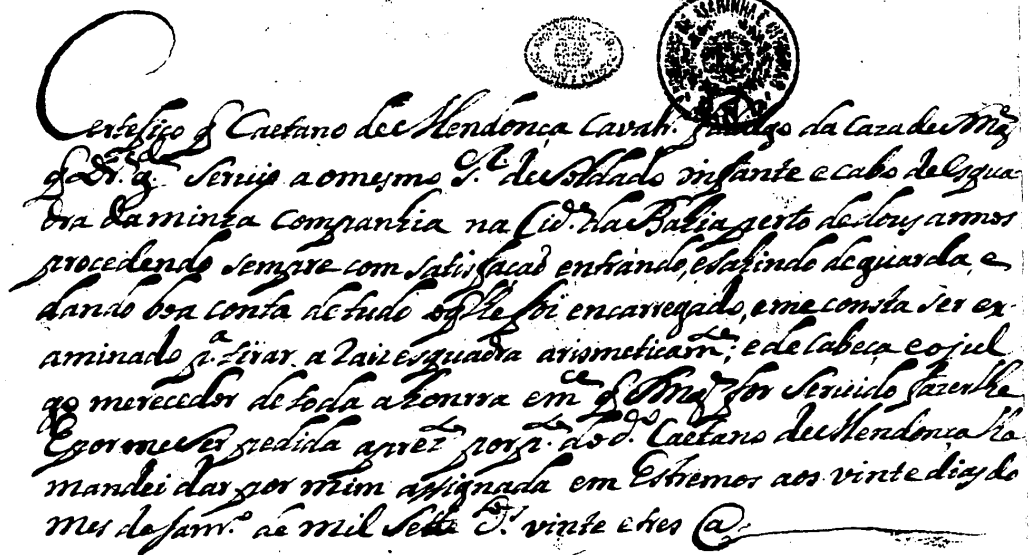 Certefico q̃ Caetano de Mendonça Cavalr.º fidalgo da Caza de S Mag.de
q̃ D.s g.de servio ao mesmo S.r de Soldado infante e cabo de esqua-
dra da minha Companhia na Cid.e da Bahia perto de dous annos
procedendo sempre com satisfaçaõ entrando, e sahindo de guarda, e
dando boa conta de tudo o q̃ lhe foi encarregado, e me consta ser ex-
aminado p.a tirar a raiz esquadra arismeticam.te; e de cabeça e o jul
go merecedor de toda a honrra e m.ce q̃ S Mag.de for servido fazerlhe
E por me ser pedida a prez.te por p.te do d.º Caetano de Mendonça lha
mandei dar por mim assignada em Estremos aos vinte dias do
mes de Janr.º de mil sette C.tos vinte e tres @